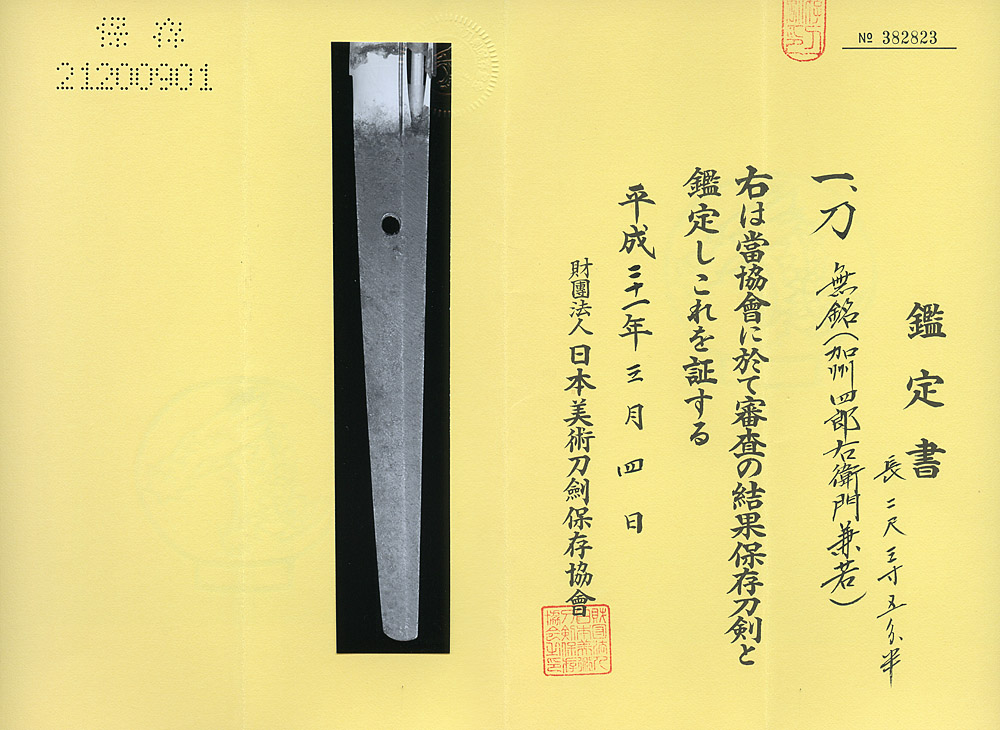 保存
21200901
№ 382823
鑑定書
長 二尺三寸五分半
一、刀 無銘(加州四郎右衛門兼若)
右は當協會に於て審査の結果保存刀剣と
鑑定しこれを証する
平成二十一年三月四日
財團法人 日本美術刀劍保存協會